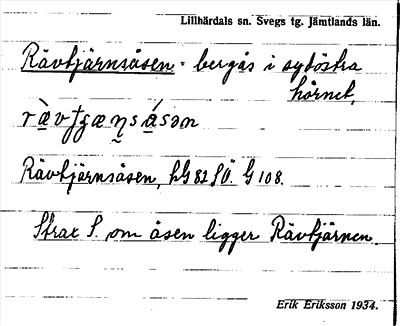 Lillhärdals sn. Svegs tg. Jämtlands län.
Rävtjärnsåsen - bergås i sydöstra
hörnet,
Rävtjärnsåsen, hG 82 SÖ. G 108.
Strax S. om åsen ligger Rävtjärnen.
Erik Eriksson 1934.